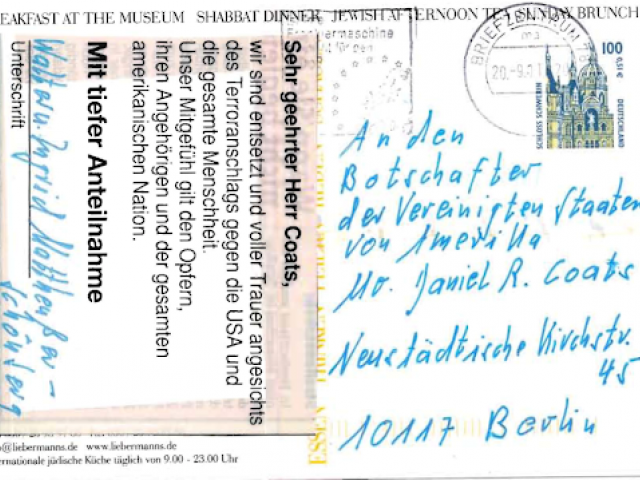 EAKFAST AT THE MUSEUM SHABBAT DINNER JEWISH AFTERNOON TEA SUNDAY BRUNCH
Sehr geehrter Herr Coats,
wir sind entsetzt und voller Trauer angesichts
des Terroranschlags gegen die USA und
die gesamte Menschheit.
Unser Mitgefühl gilt den Opfern,
ihren Angehörigen und der gesamten
amerikanischen Nation.
Mit tiefer Anteilnahme
Walter u. Ingrid
Unterschrift
BRIEFZENTRUM
100
0,51 €
DEUTSCHLAND
SCHLOSS SCHWERIN
An den
Botschafter
der Vereinigten Staaten
von Amerika
Mr. Daniel R. Coats
Neustädtische Kirchstr.
45
10117 Berlin
@liebermanns.de www.liebermanns.de
ernationale jüdische Küche täglich von 9.00 - 23.00 Uhr